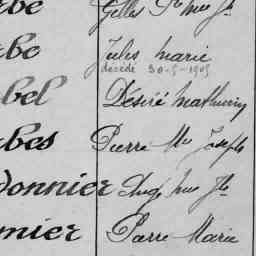 be Gilles
be Jules Marie
décédé 30-5-1905
bel Désiré Mathurin
bes Pierre Me Joseph
donnier Ange
nier Pierre Marie